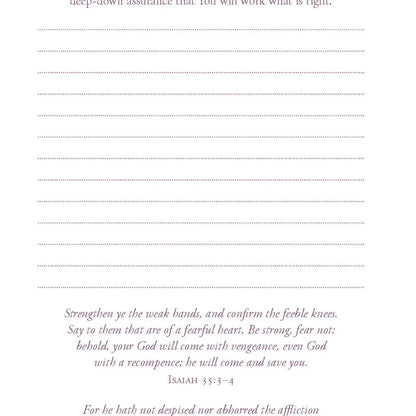 deep-down assurance that You will work what is right.
Strengthen ye the weak hands, and confirm the feeble knees.
Say to them that are of a fearful heart, Be strong, fear not:
behold, your God will come with vengeance, even God
with a recompence; he will come and save you.
Isaiah 35:3–4
For he hath not despised nor abhorred the affliction